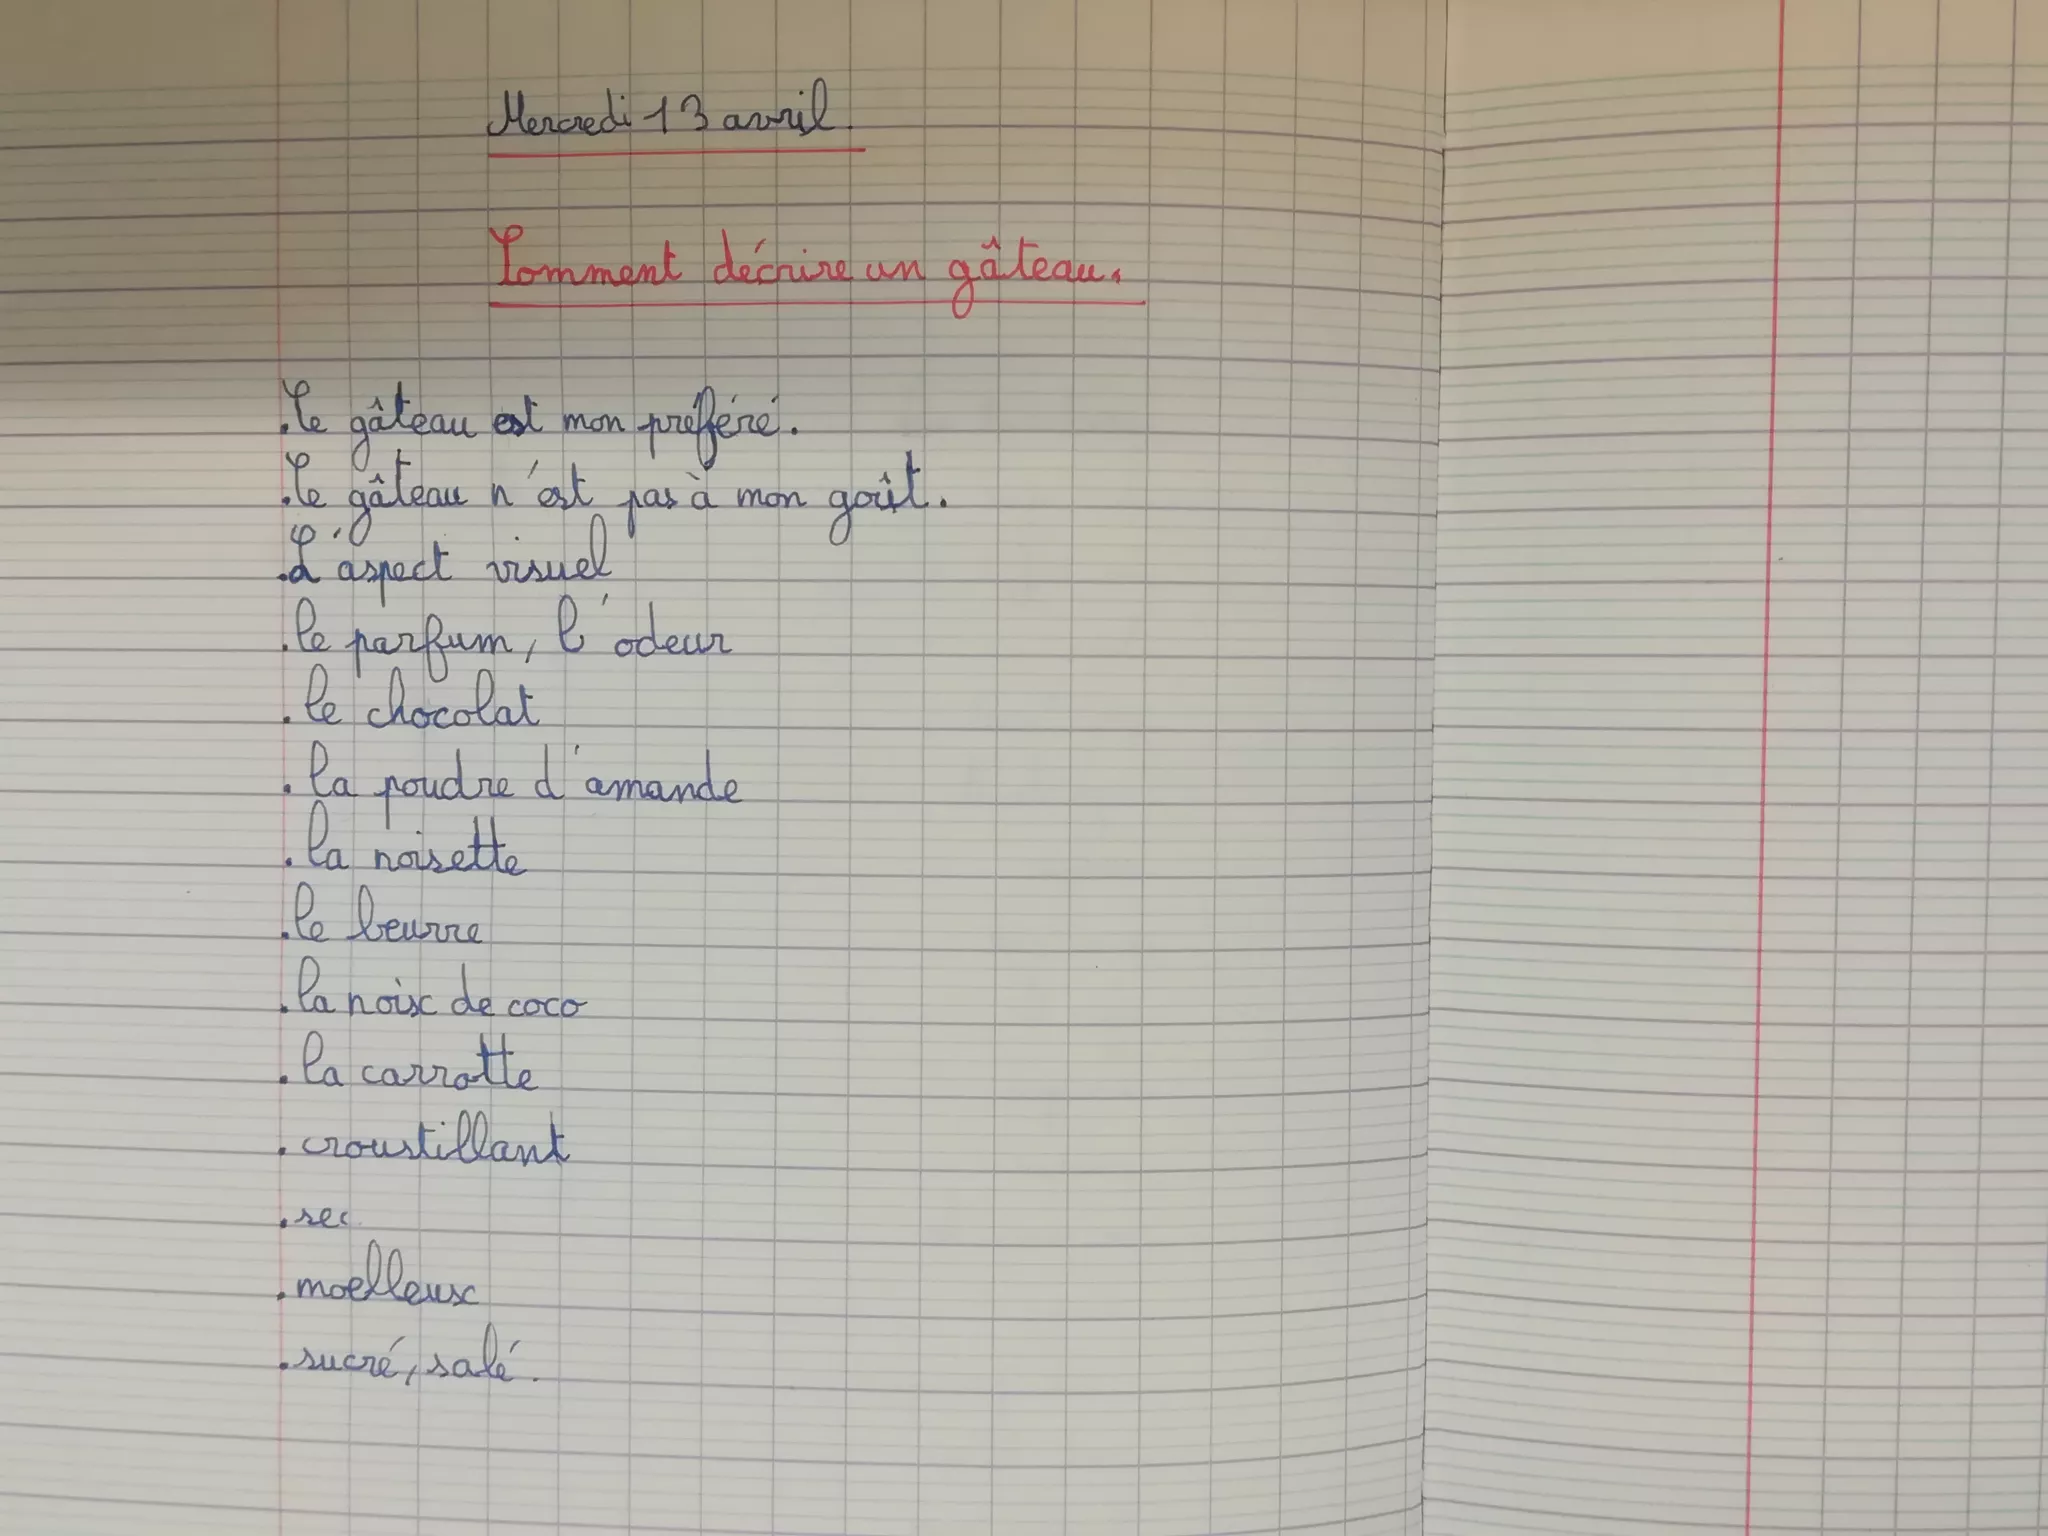 Mercredi 13 avril.
Comment décrire un gâteau.
.Le gâteau est mon préféré.
.Le gâteau n'est pas à mon goût.
.L'aspect visuel
.le parfum, l'odeur
.le chocolat
.la poudre d'amande
.la noisette
.le beurre
.la noix de coco
.la carrotte
.croustillant
.sec
.moelleux
.sucré, salé.